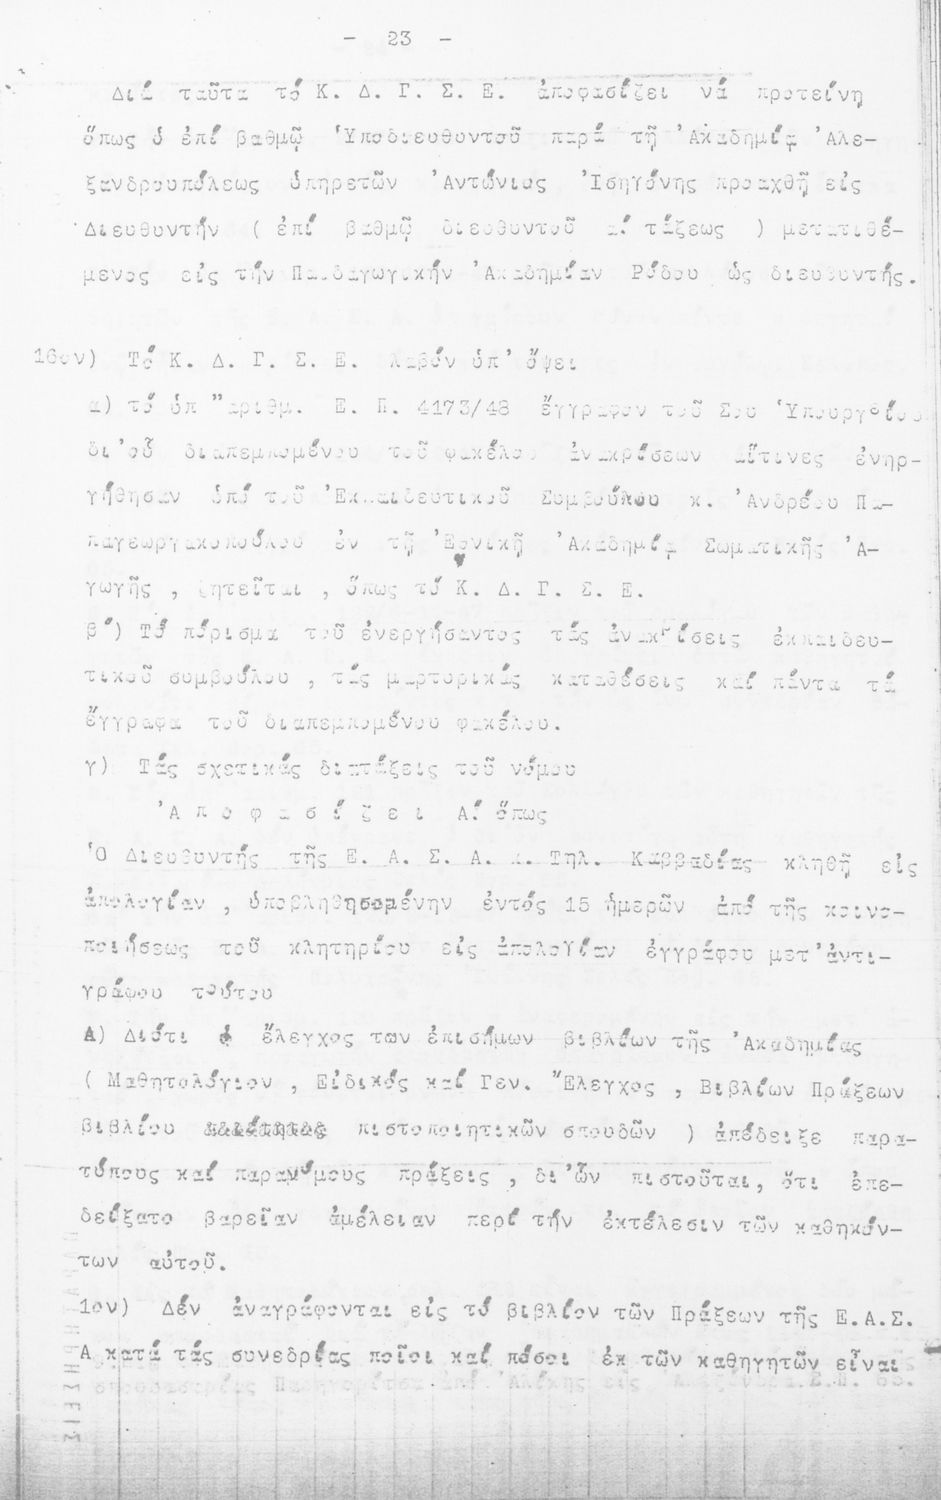 - 23 -
Διά ταῦτα τό Κ. Δ. Γ. Σ. Ε. ἀποφασίζει νά προτείνη
ὅπως ὁ ἐπί βαθμῷ Ὑποδιευθυντοῦ παρά τῇ Ἀκαδημίᾳ Ἀλε-
ξανδρουπόλεως ὑπηρετῶν Ἀντώνιος Ἰσηγόνης προαχθῇ εἰς
Διευθυντήν ( ἐπί βαθμῷ διευθυντοῦ α΄ τάξεως ) μετατιθέ-
μενος εἰς τήν Παιδαγωγικήν Ἀκαδημίαν Ρόδου ὡς διευθυντής.
16ον) Τό Κ. Δ. Γ. Σ. Ε. λαβόν ὑπ' ὄψει
α) τό ὑπ "αριθμ. Ε. Π. 4173/48 ἔγγραφον τοῦ Σου Ὑπουργείου
δι'οὗ διαπεμπομένου τοῦ φακέλου ἀνακρίσεων αἵτινες ἐνηρ-
γήθησαν ὑπό τοῦ Ἐκπαιδευτικοῦ Συμβούλου κ. Ἀνδρέου Πα-
παγεωργακοπούλου ἐν τῇ Ἐθνικῇ Ἀκαδημίᾳ Σωματικῆς Ἀ-
γωγῆς , ζητεῖται , ὅπως τό Κ. Δ. Γ. Σ. Ε.
β΄) Τό πόρισμα τοῦ ἐνεργήσαντος τάς ἀνακρίσεις ἐκπαιδευ-
τικοῦ συμβούλου , τάς μαρτυρικάς καταθέσεις καί πάντα τά
ἔγγραφα τοῦ διαπεμπομένου φακέλου.
γ) Τάς σχετικάς διατάξεις τοῦ νόμου
Ἀ π ο φ α σ ί ζ ε ι Α΄ ὅπως
Ὁ Διευθυντής τῆς Ε. Α. Σ. Α. κ. Τηλ. Καββαδίας κληθῇ εἰς
ἀπολογίαν , ὑποβληθησομένην ἐντός 15 ἡμερῶν ἀπό τῆς κοινο-
ποιήσεως τοῦ κλητηρίου εἰς ἀπολογίαν ἐγγράφου μετ'ἀντι-
γράφου τούτου
Α) Διότι ὁ ἔλεγχος των ἐπισήμων βιβλίων τῆς Ἀκαδημίας
( Μαθητολόγιον , Εἰδικός καί Γεν. Ἔλεγχος , Βιβλίων Πράξεων
βιβλίου πιστοποιητικῶν σπουδῶν ) ἀπέδειξε παρα-
τύπους καί παρανόμους πράξεις , δι'ὧν πιστοῦται, ὅτι ἐπε-
δείξατο βαρεῖαν ἀμέλειαν περί τήν ἐκτέλεσιν τῶν καθηκόν-
των αὐτοῦ.
1ον) Δέν ἀναγράφονται εἰς τό βιβλίον τῶν Πράξεων τῆς Ε.Α.Σ.
Α κατά τάς συνεδρίας ποῖοι καί πόσοι ἐκ τῶν καθηγητῶν εἶναι